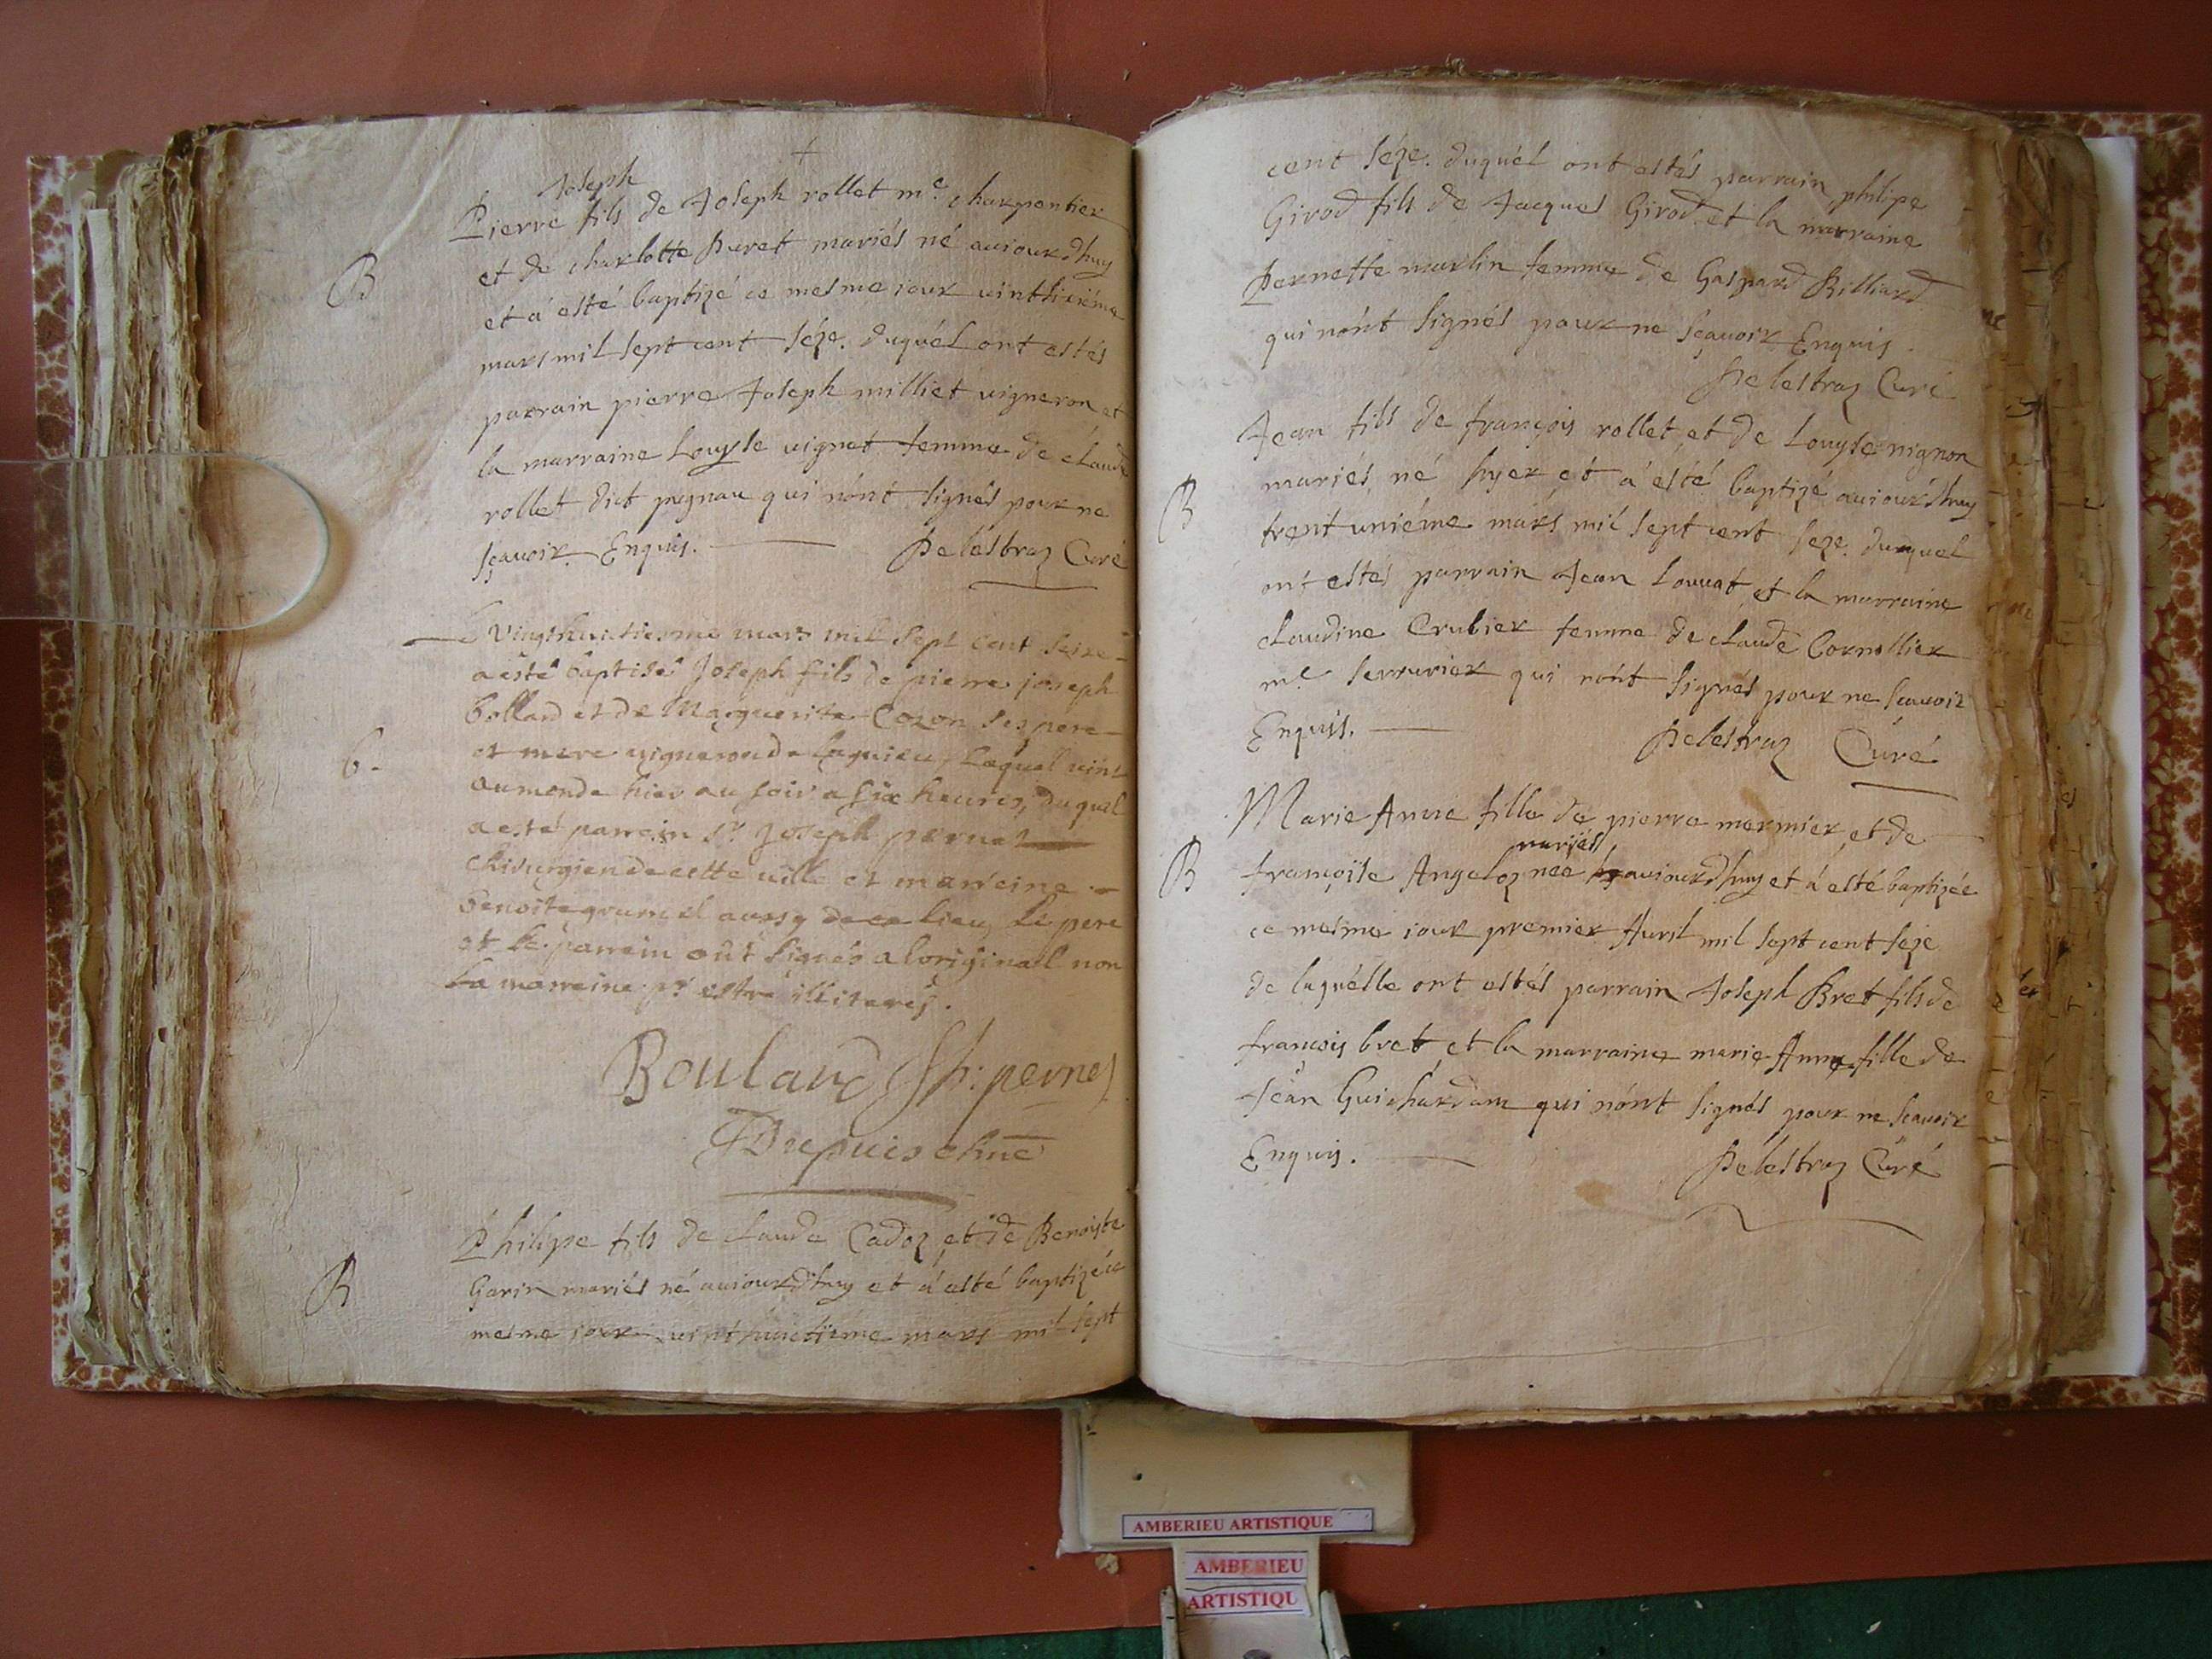 +
Joseph
Pierre fils de Joseph rollet m.e charpentier
et de charlotte puret mariés né auiourdhuy
B
et á esté baptizé ce mesme iour uintsixiéme
mars mil sept cent séze. duquél ont estés
parrain pierre Joseph milliet uigneron et
la marraine Louyse uignet femme de claude
rollet dict pugnau qui nónt signés pour ne
sçauoir. Enquis. Pelestraz Curé
Le Vingthuictiesme mars mil sept cent seize
a esté baptisé Joseph fils de pierre joseph
bollard et de Marguerite Cozon ses pere
et mere uigneron de lagnieu, lequel uint
6.
au monde hier au soir a six heures, duquel
a esté parrein sr. Joseph pernet
chirurgien de cette uille et marreine
benoite grumel aussy de ce lieu, le pere
et le parrein ont signés a l'original non
la marreine pr estre illiterés.
Boulard Jph: pernet
Dupuis chne
Philipe fils de claude Cadoz et de Benoiste
Garin mariés né auiourdhuy et á esté baptizé ce
B
mesme iour uinthuictiéme mars mil sept
cent séze. duquél ont estés parrain philipe
Girod fils de Jacques Girod et la marraine
Pernette marlin femme de Gaspard Billiard
qui nónt signés pour ne sçauoir Enquis.
Pelestraz Curé
Jean fils de françois rollet et de Louyse mignon
mariés né hyer et á esté baptizé auiourdhuy
B
trentuniéme mars mil sept cent seze. duquel
ont estés parrain Jean Louuat et la marraine
claudine Crubier femme de claude Cornollier
m.e serrurier qui nónt signés pour ne sçauoir
Enquis. Pelestraz Curé
Marie Anne fille de pierre mermier et de
mariés
B
françoise Angeloz née auiourdhuy et á esté baptizée
ce mesme iour premier Auril mil sept cent seze
de laquélle ont estés parrain Joseph Bret fils de
françois bret et la marraine marie Anne fille de
Jean Guichardam qui nónt signés pour ne sçauoir
Enquis. Pelestraz Curé
AMBERIEU ARTISTIQUE
AMBERIEU
ARTISTIQU